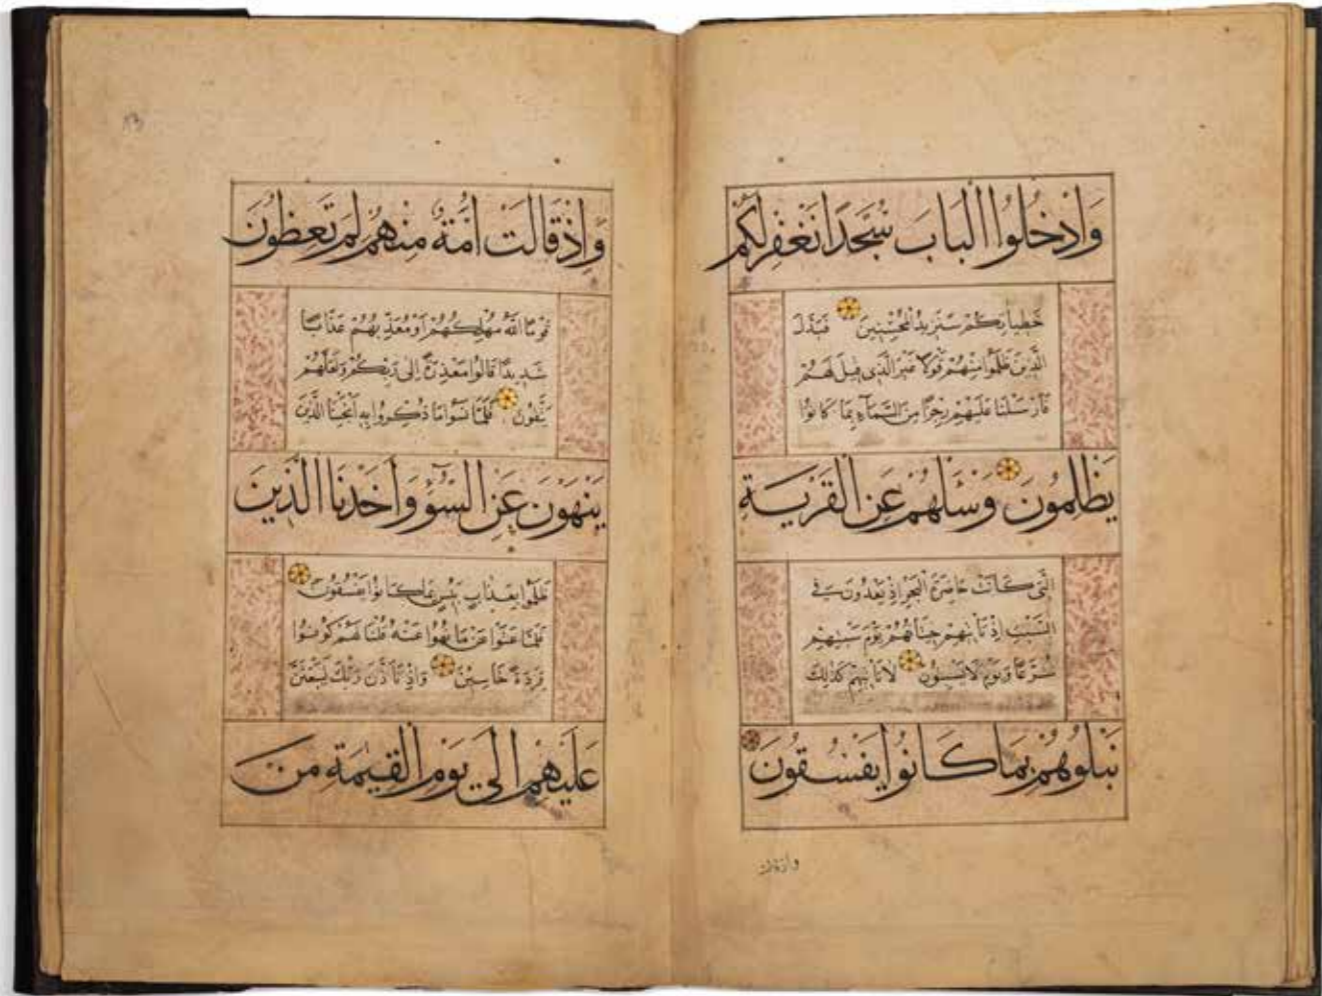 وَادْخُلُوا الْبَابَ سُجَّدًا نَغْفِرْ لَكُمْ
خَطِيـَٔاتِكُمْ سَنَزِيدُ الْمُحْسِنِينَ فَبَدَّلَ
الَّذِينَ ظَلَمُوا مِنْهُمْ قَوْلًا غَيْرَ الَّذِى قِيلَ لَهُمْ
فَأَرْسَلْنَا عَلَيْهِمْ رِجْزًا مِنَ السَّمَآءِ بِمَا كَانُوا
يَظْلِمُونَ وَسْئَلْهُمْ عَنِ الْقَرْيَةِ
الَّتِى كَانَتْ حَاضِرَةَ الْبَحْرِ إِذْ يَعْدُونَ فِى
السَّبْتِ إِذْ تَأْتِيهِمْ حِيتَانُهُمْ يَوْمَ سَبْتِهِمْ
شُرَّعًا وَيَوْمَ لَا يَسْبِتُونَ لَا تَأْتِيهِمْ كَذٰلِكَ
نَبْلُوهُمْ بِمَا كَانُوا يَفْسُقُونَ
واذ قالت
وَإِذْ قَالَتْ أُمَّةٌ مِنْهُمْ لِمَ تَعِظُونَ
قَوْمًا اللّٰهُ مُهْلِكُهُمْ أَوْ مُعَذِّبُهُمْ عَذَابًا
شَدِيدًا قَالُوا مَعْذِرَةً إِلَى رَبِّكُمْ وَلَعَلَّهُمْ
يَتَّقُونَ فَلَمَّا نَسُوا مَا ذُكِّرُوا بِهِ أَنْجَيْنَا الَّذِينَ
يَنْهَوْنَ عَنِ السُّوءِ وَأَخَذْنَا الَّذِينَ
ظَلَمُوا بِعَذَابٍ بَئِيسٍ بِمَا كَانُوا يَفْسُقُونَ
فَلَمَّا عَتَوْا عَنْ مَا نُهُوا عَنْهُ قُلْنَا لَهُمْ كُونُوا
قِرَدَةً خَاسِئِينَ وَإِذْ تَأَذَّنَ رَبُّكَ لَيَبْعَثَنَّ
عَلَيْهِمْ إِلَى يَوْمِ الْقِيٰمَةِ مَنْ